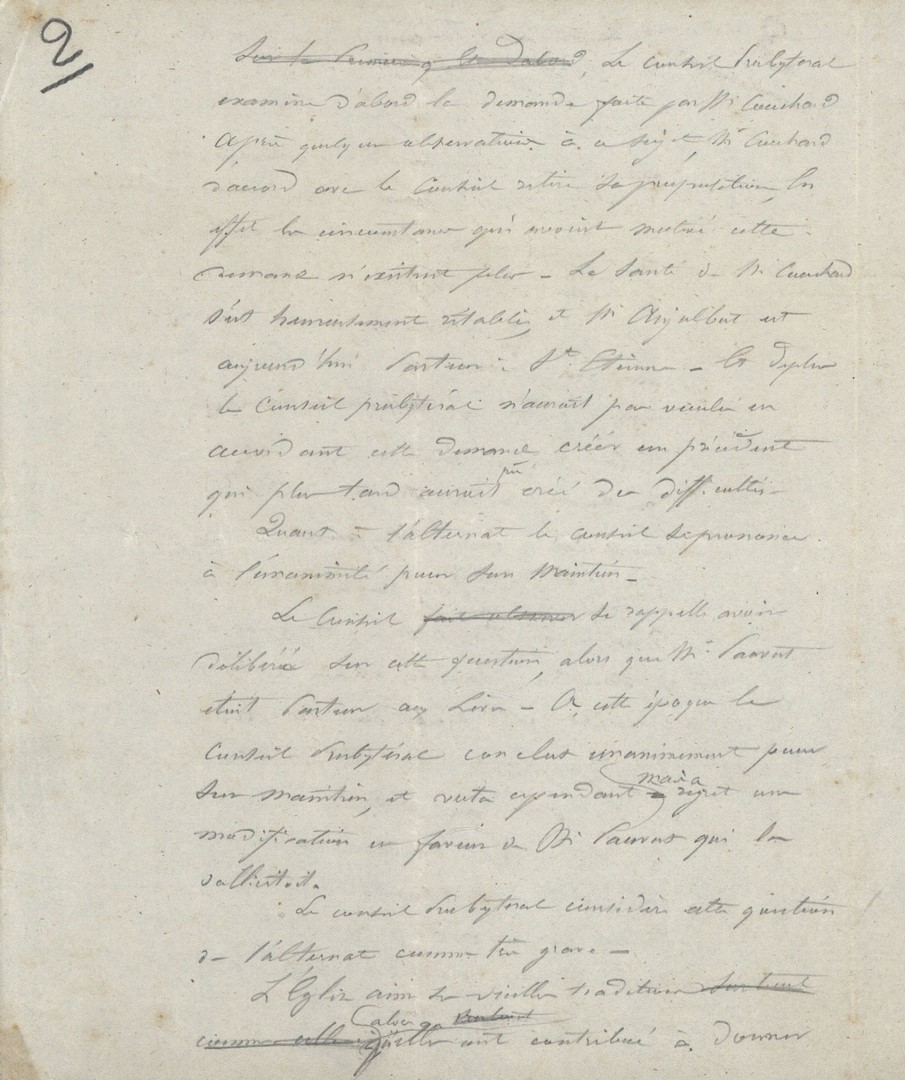 2/
Le Conseil Presbyteral
examine d'abord la demande faite par Mr Couchard
Après quelques observations à ce sujet, Mr Couchard
d'accord avec le Conseil retire sa proposition, En
effet les circonstances qui avaient motivé cette
demande n'existent plus – La Santé de Mr Couchard
s'est heureusement rétablie, et Mr est
aujourd'hui Pasteur à St Etienne – Et de plus
le Conseil presbytéral n'aurait pas voulu en
accordant cette demande créer un précédent
qui plus tard aurait pu créé des difficultés –
Quant à l'alternat le conseil se prononce
à l'unanimité pour son maintien –
Le Conseil se rappelle avoir
délibéré sur cette question, alors que Mr
était Pasteur aux – A cette époque le
Conseil Presbytéral conclut unanimement pour
son maintien, et vota cependant mais a regret une
modification en faveur de Mr qui la
sollicitait.
Le conseil Presbyteral considère cette question
de l'alternat comme très grave –
L'Eglise aime ses vieilles traditions surtout
comme celles alors qu'elles ont contribué à donner